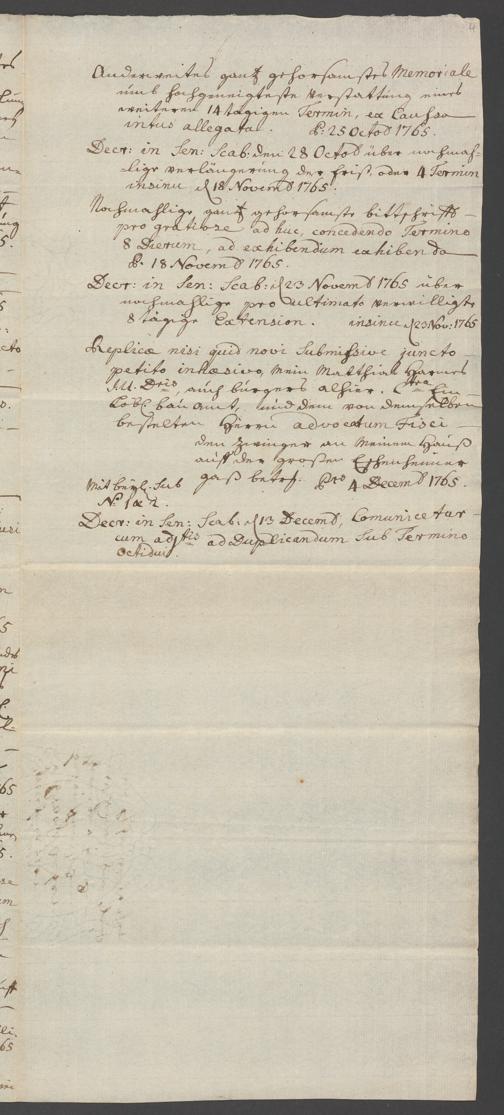 Anderweites gantz gehorsamstes Memoriale
umb hochgeneigteste verstattung eines
weiteren 14 tägigen Termin, ex Caussa
intus allegata. Pr. 25 Octob 1765.
Decr: in Sen: Scab: den 28 Octob über nochmah-
lige verlängerung der frist oder 4 Termin
insinu. d 18 Novemb 1765.
Nochmahlige gantz gehorsamste bittschrifft
pro gratiose ad huc, concedendo Termino
8 Dierum, ad exhibendum exhibenda
Pr. 18 Novemb 1765.
Decr: in Sen: Scab: d 23 Novemb 1765 über
nochmahlige pro ultimato verwilligte
8 tägige Extension. insinu d 23 Nov: 1765
Replicæ nisi quid novi Submissive juncto
petito inhæsivo, Mein Matthiæ Harnes
J.U. Dris, auch burgers alhier. Ctra Ein
Löbl. bau Amt, und dem von demselben
bestelten Herrn advocatum Fisci
den zwinger an meinem Hauß
auff der großen Eschenheimer
gaß betrf. Pro 4 Decemb 1765.
Mit beyl. Sub
N. 1 & 2.
Decr: in Sen: Scab: d 13 Decemb, Comunicetur
cum adjtis ad Duplicandum Sub Termino
Octidui.